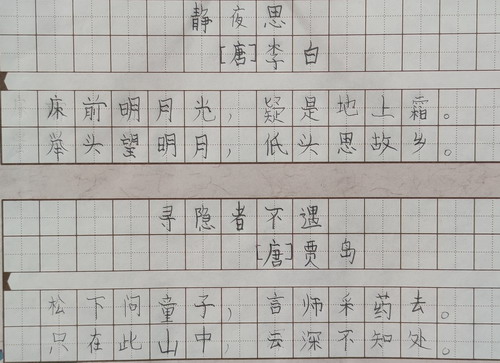 静夜思
[唐]李白
床前明月光,疑是地上霜。
举头望明月,低头思故乡。
寻隐者不遇
[唐]贾岛
松下问童子,言师采药去。
只在此山中,云深不知处。